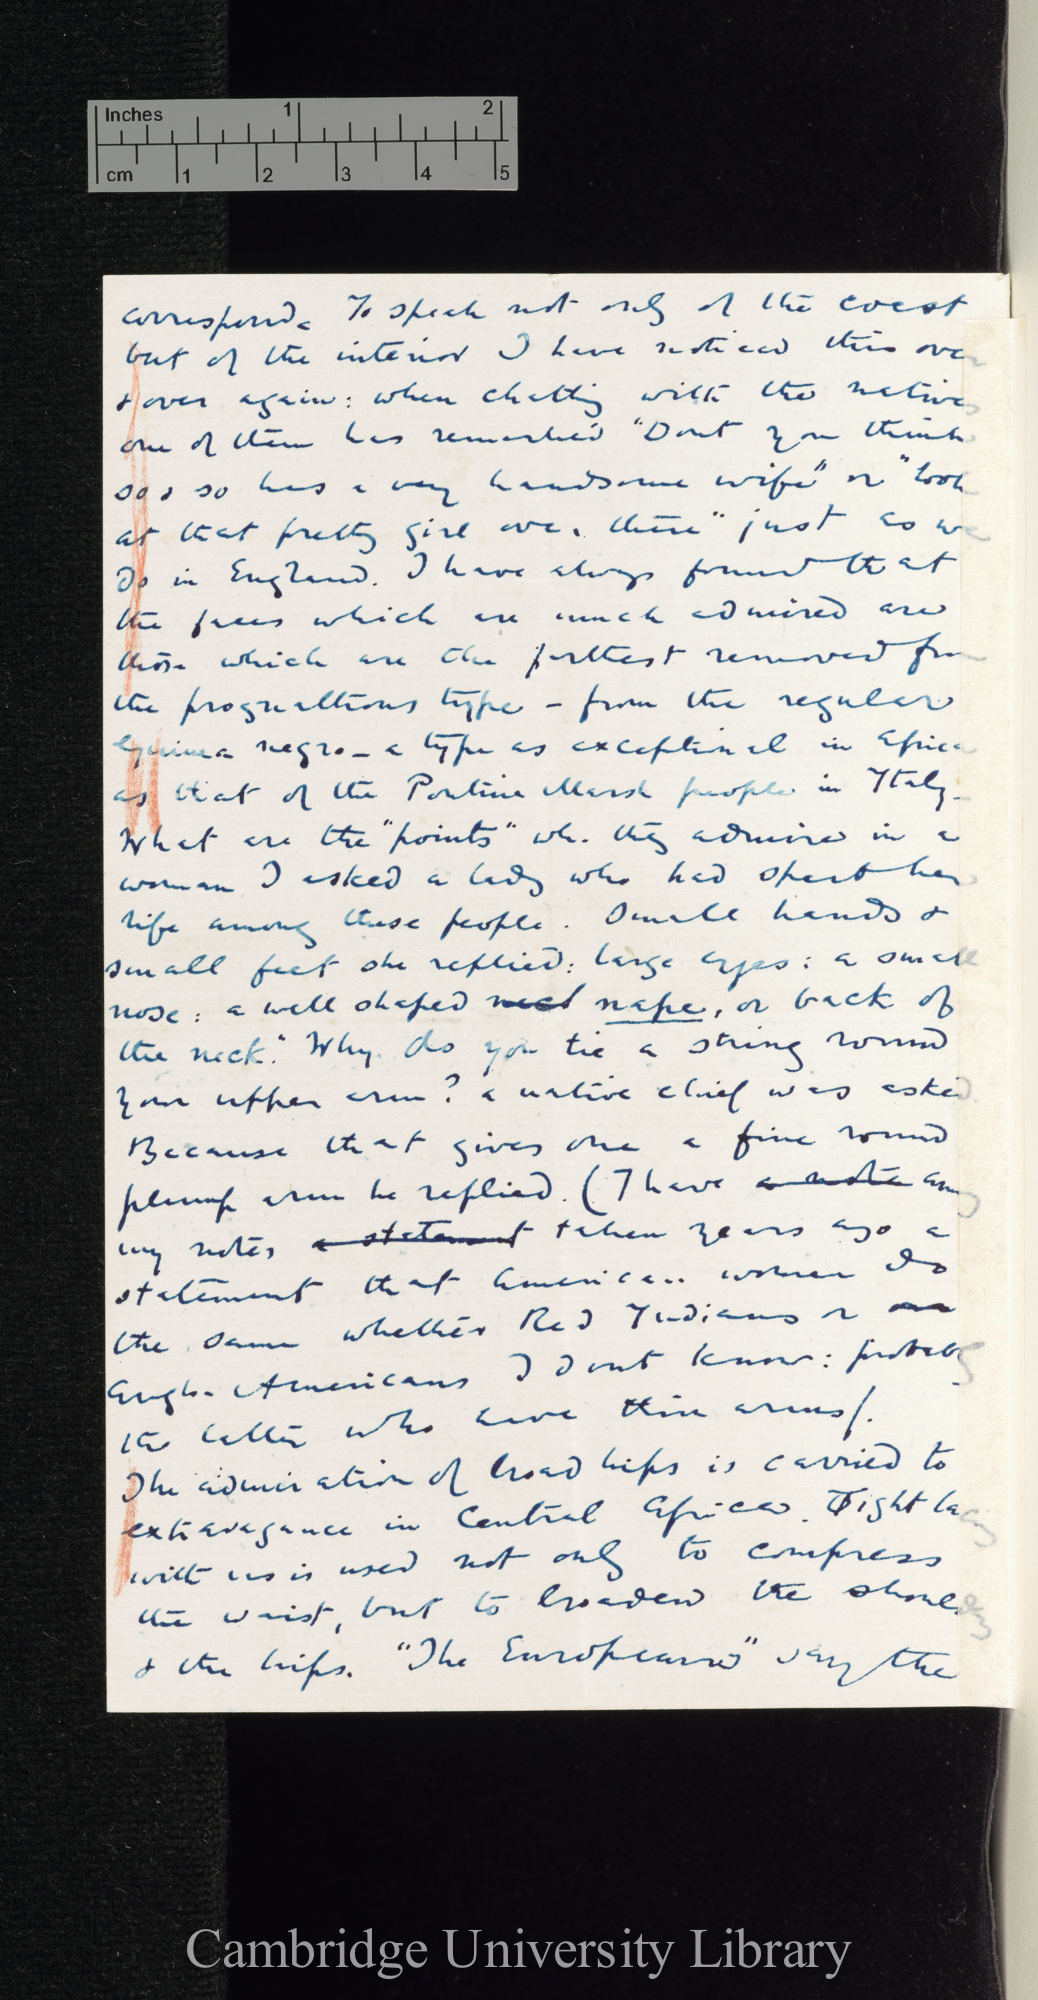 Inches 1 2
cm 1 2 3 4 5
correspond. To speak not only of the coast
but of the interior I have noticed this over
& over again: when chatting with the natives
one of them has remarked "Dont you think
so & so has a very handsome wife" or "look
at that pretty girl over there" just as we
do in England. I have always found that
the faces which are much admired are
those which are the furthest removed from
the prognathous type – from the regular
Guinea negro – a type as exceptional in Africa
as that of the Pontine Marsh people in Italy –
What are the "points" wh. they admire in a
woman I asked a lady who had spent her
life among these people. Small hands &
small feet she replied: large eyes: a small
nose: a well shaped neck nape, or back of
the neck." Why do you tie a string round
your upper arm? a native chief was asked
Because that gives one a fine round
plump arm he replied. (I have a note among
my notes a statement taken years ago a
statement that American women do
the same whether Red Indians or
Anglo-Americans I dont know: probably
the latter who have thin arms).
The admiration of broad hips is carried to
extravagance in Central Africa. Tight lacing
with us is used not only to compress
the waist, but to broaden the shoulders
& the hips. "The Europeans" say the
Cambridge University Library